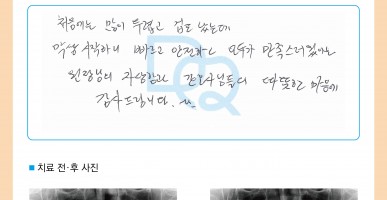 처음에는 많이 두렵고 겁도 났는데
막상 시작하니 빠르고 안전하고 만족스러웠
원장님의 자상함과 간호사님들의 따뜻한 마음에
감사드립니다.
■ 치료 전·후 사진